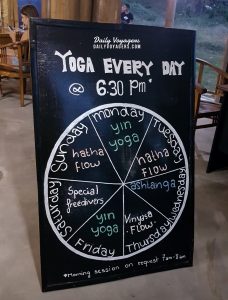 Daily Voyagers
DAILYVOYAGERS.COM
YOGA EVERY DAY
@ 6:30 PM
monday
yin
yoga
Tuesday
hatha
flow
Wednesday
ashtanga
Thursday
Vinyasa
Flow
Friday
yin
yoga
Saturday
Special
freedivers
Sunday
hatha
flow
*Morning session on request 7am-8am